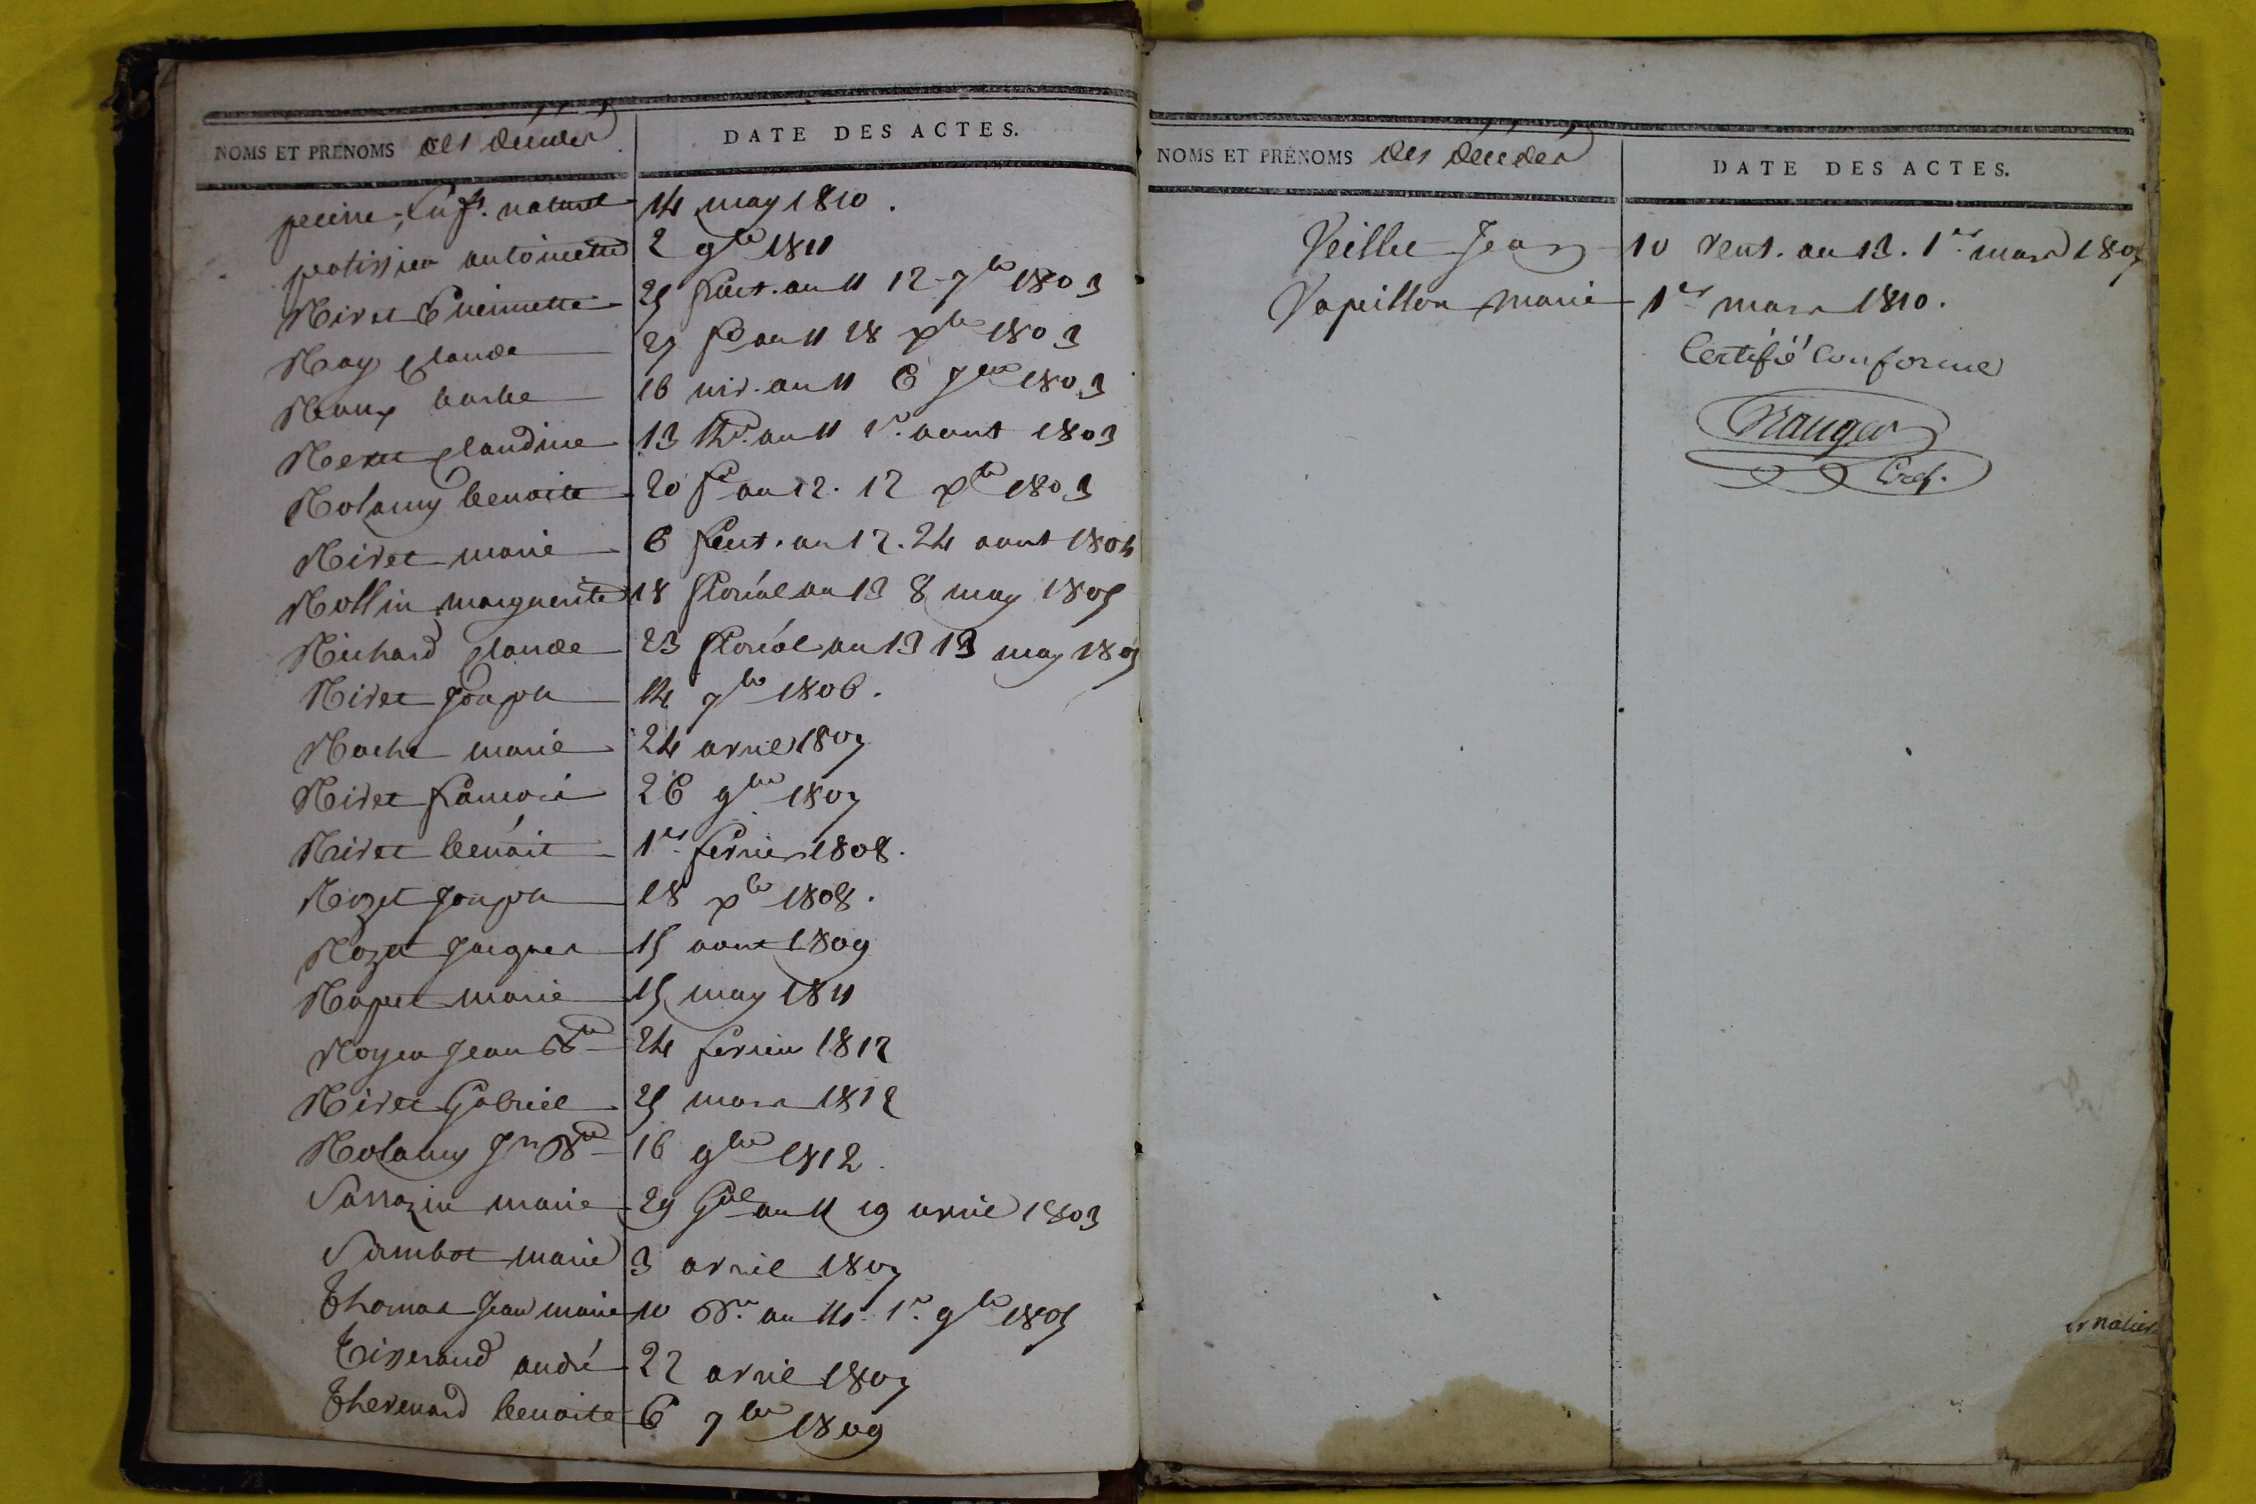 NOMS ET PRÉNOMS des décédés
DATE DES ACTES.
perrine, enf. naturel 14 may 1810.
patissier antoinette 2 9bre 1811
Rivet Pierrette 25 fruct. an 11 12 7bre 1803
Ray Claude 27 fre an 11 18 xbre 1803
Raux barbe 16 niv. an 11 6 Jer 1803
claudine 13 Thr. an 11 1er aout 1803
Rolamy benoite 20 fre an 12. 12 xbre 1803
Rivet marie 6 fruct. an 12. 24 aout 1804
Rollin marguerite 18 floréal an 13 8 may 1805
Richard Claude 23 floréal an 13 13 may 1805
Rivet Joseph 14 7bre 1806.
Roche marie 24 avril 1807
Rivet francois 26 9bre 1807
Rivet benoit 1er fevrier 1808.
Rozet Joseph 18 xbre 1808.
Rozet Jacques 15 aout 1809
Raput marie 15 may 1811
Royer Jean Bte 24 fevrier 1812
Rivet Gabriel 25 mars 1812
Rolamy Jn Bte 16 9bre 1812.
Sarrazin marie 29 Gal an 11 19 avril 1803
Sambot marie 3 avril 1807
Thomas Jean marie 10 Br. an 14. 1er 9bre 1805
Tisserand andré 22 avril 1807
Thevenard benoite 6 7bre 1809
NOMS ET PRÉNOMS des décédés
DATE DES ACTES.
Veillie Jean 10 vent. an 13. 1er mars 1805
Vapillon marie 1er mars 1810.
Certifié conforme